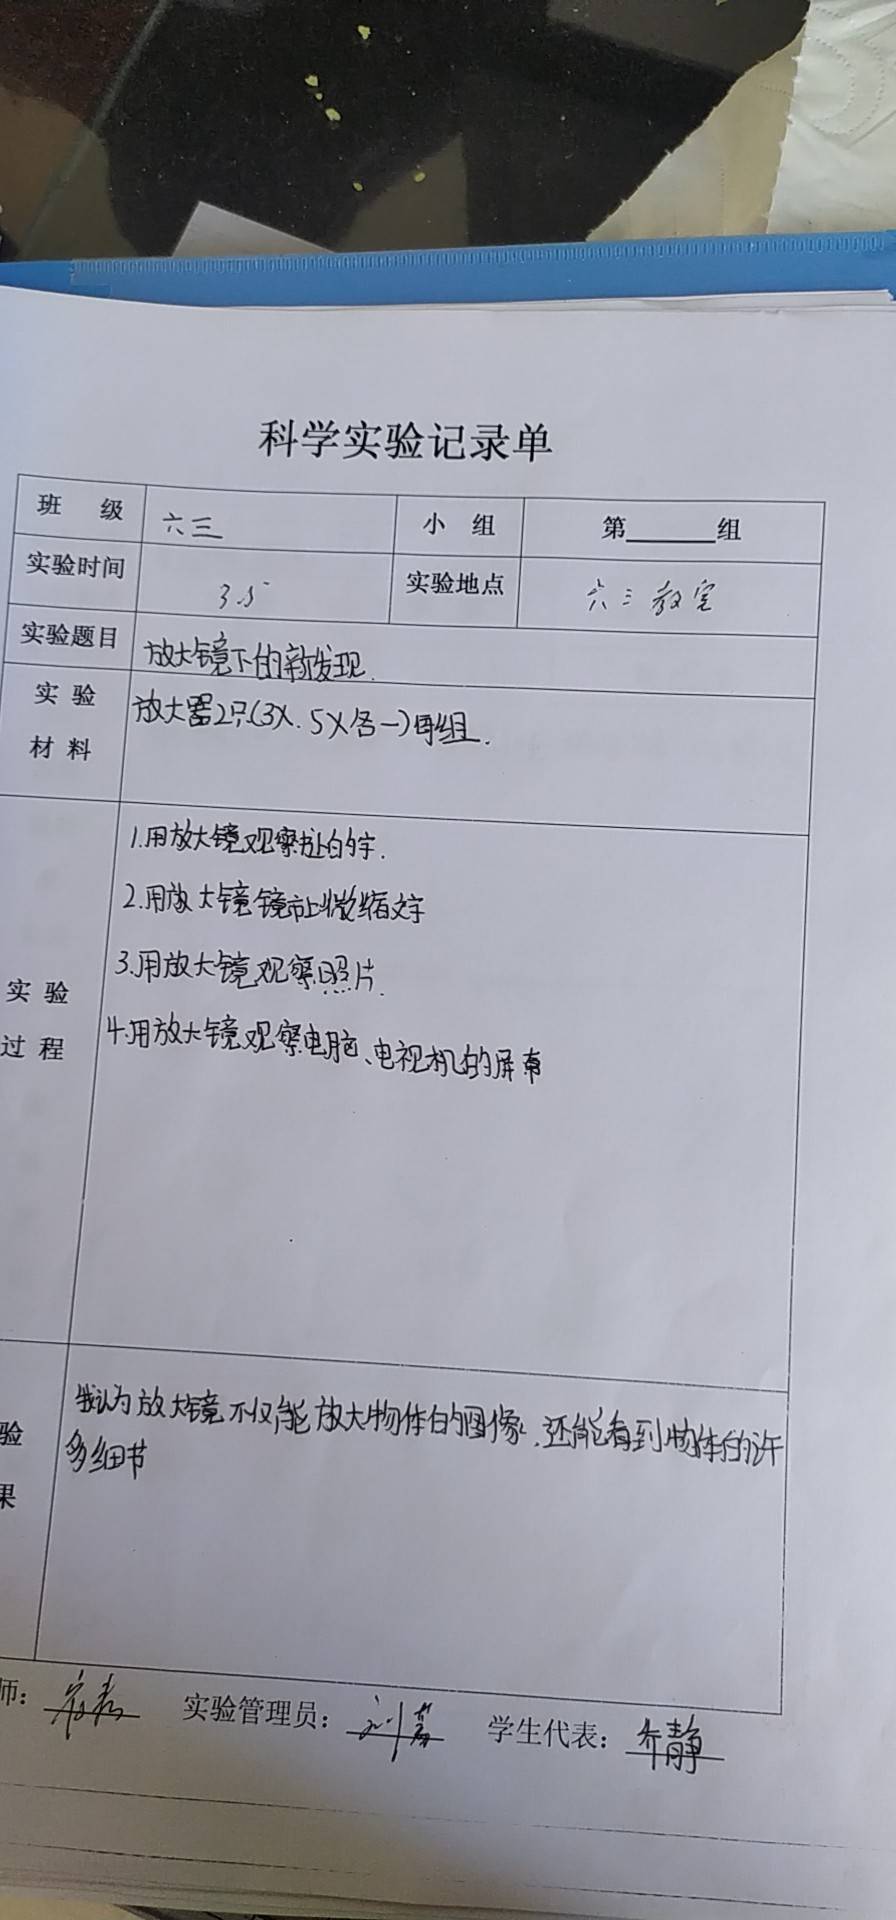 科学实验记录单
班 级 六三 小 组 第______组
实验时间 3.5 实验地点 六三教室
实验题目 放大镜下的新发现.
实 验
材 料
放大器2只(3X.5X各一)每组.
1.用放大镜观察
2.用放大镜 微缩文字
3.用放大镜观察照片.
实 验
过 程
4.用放大镜观察电脑、电视机的屏幕
我认为放大镜不仅能放大物体的图像,还能看到物体的许
多细节
验
果
师: 实验管理员: 学生代表: 乔静